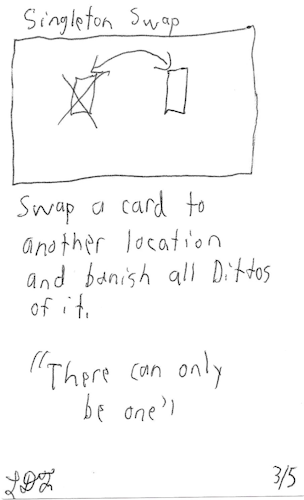 Singleton Swap
Swap a card to
another location
and banish all Dittos
of it.
"There can only
be one"
LDZ
3/5